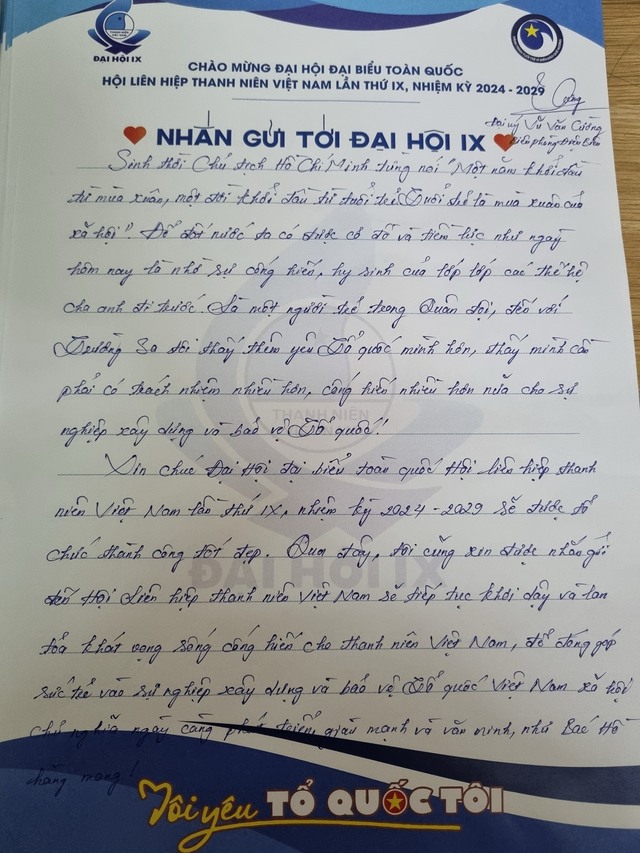 ĐẠI HỘI IX
CHÀO MỪNG ĐẠI HỘI ĐẠI BIỂU TOÀN QUỐC
HỘI LIÊN HIỆP THANH NIÊN VIỆT NAM LẦN THỨ IX, NHIỆM KỲ 2024 - 2029
Cường
Đại uý Vũ Văn Cường
Biên phòng Điện Biên
NHẮN GỬI TỚI ĐẠI HỘI IX
Sinh thời Chủ tịch Hồ Chí Minh từng nói "Một năm khởi đầu
từ mùa xuân, một đời khởi đầu từ tuổi trẻ. Tuổi trẻ là mùa xuân của
xã hội". Để đất nước ta có được cơ đồ và tiềm lực như ngày
hôm nay là nhờ sự cống hiến, hy sinh của lớp lớp các thế hệ
cha anh đi trước. Là một người trẻ trong Quân đội, đến với
Trường Sa tôi thấy thêm yêu Tổ quốc mình hơn, thấy mình cần
phải có trách nhiệm nhiều hơn, cống hiến nhiều hơn nữa cho sự
nghiệp xây dựng và bảo vệ Tổ quốc!
Xin chúc Đại Hội đại biểu toàn quốc Hội liên hiệp thanh
niên Việt Nam lần thứ IX, nhiệm kỳ 2024 - 2029 sẽ được tổ
chức thành công tốt đẹp. Qua đây, tôi cũng xin được nhắn gửi
đến Hội Liên hiệp thanh niên Việt Nam sẽ tiếp tục khơi dậy và lan
tỏa khát vọng sống cống hiến cho thanh niên Việt Nam, để đóng góp
sức trẻ vào sự nghiệp xây dựng và bảo vệ Tổ quốc Việt Nam xã hội
chủ nghĩa ngày càng phát triển, giàu mạnh và văn minh, như Bác Hồ
hằng mong!
THANH NIÊN
ĐẠI HỘI IX
Tôi yêu TỔ QUỐC TÔI